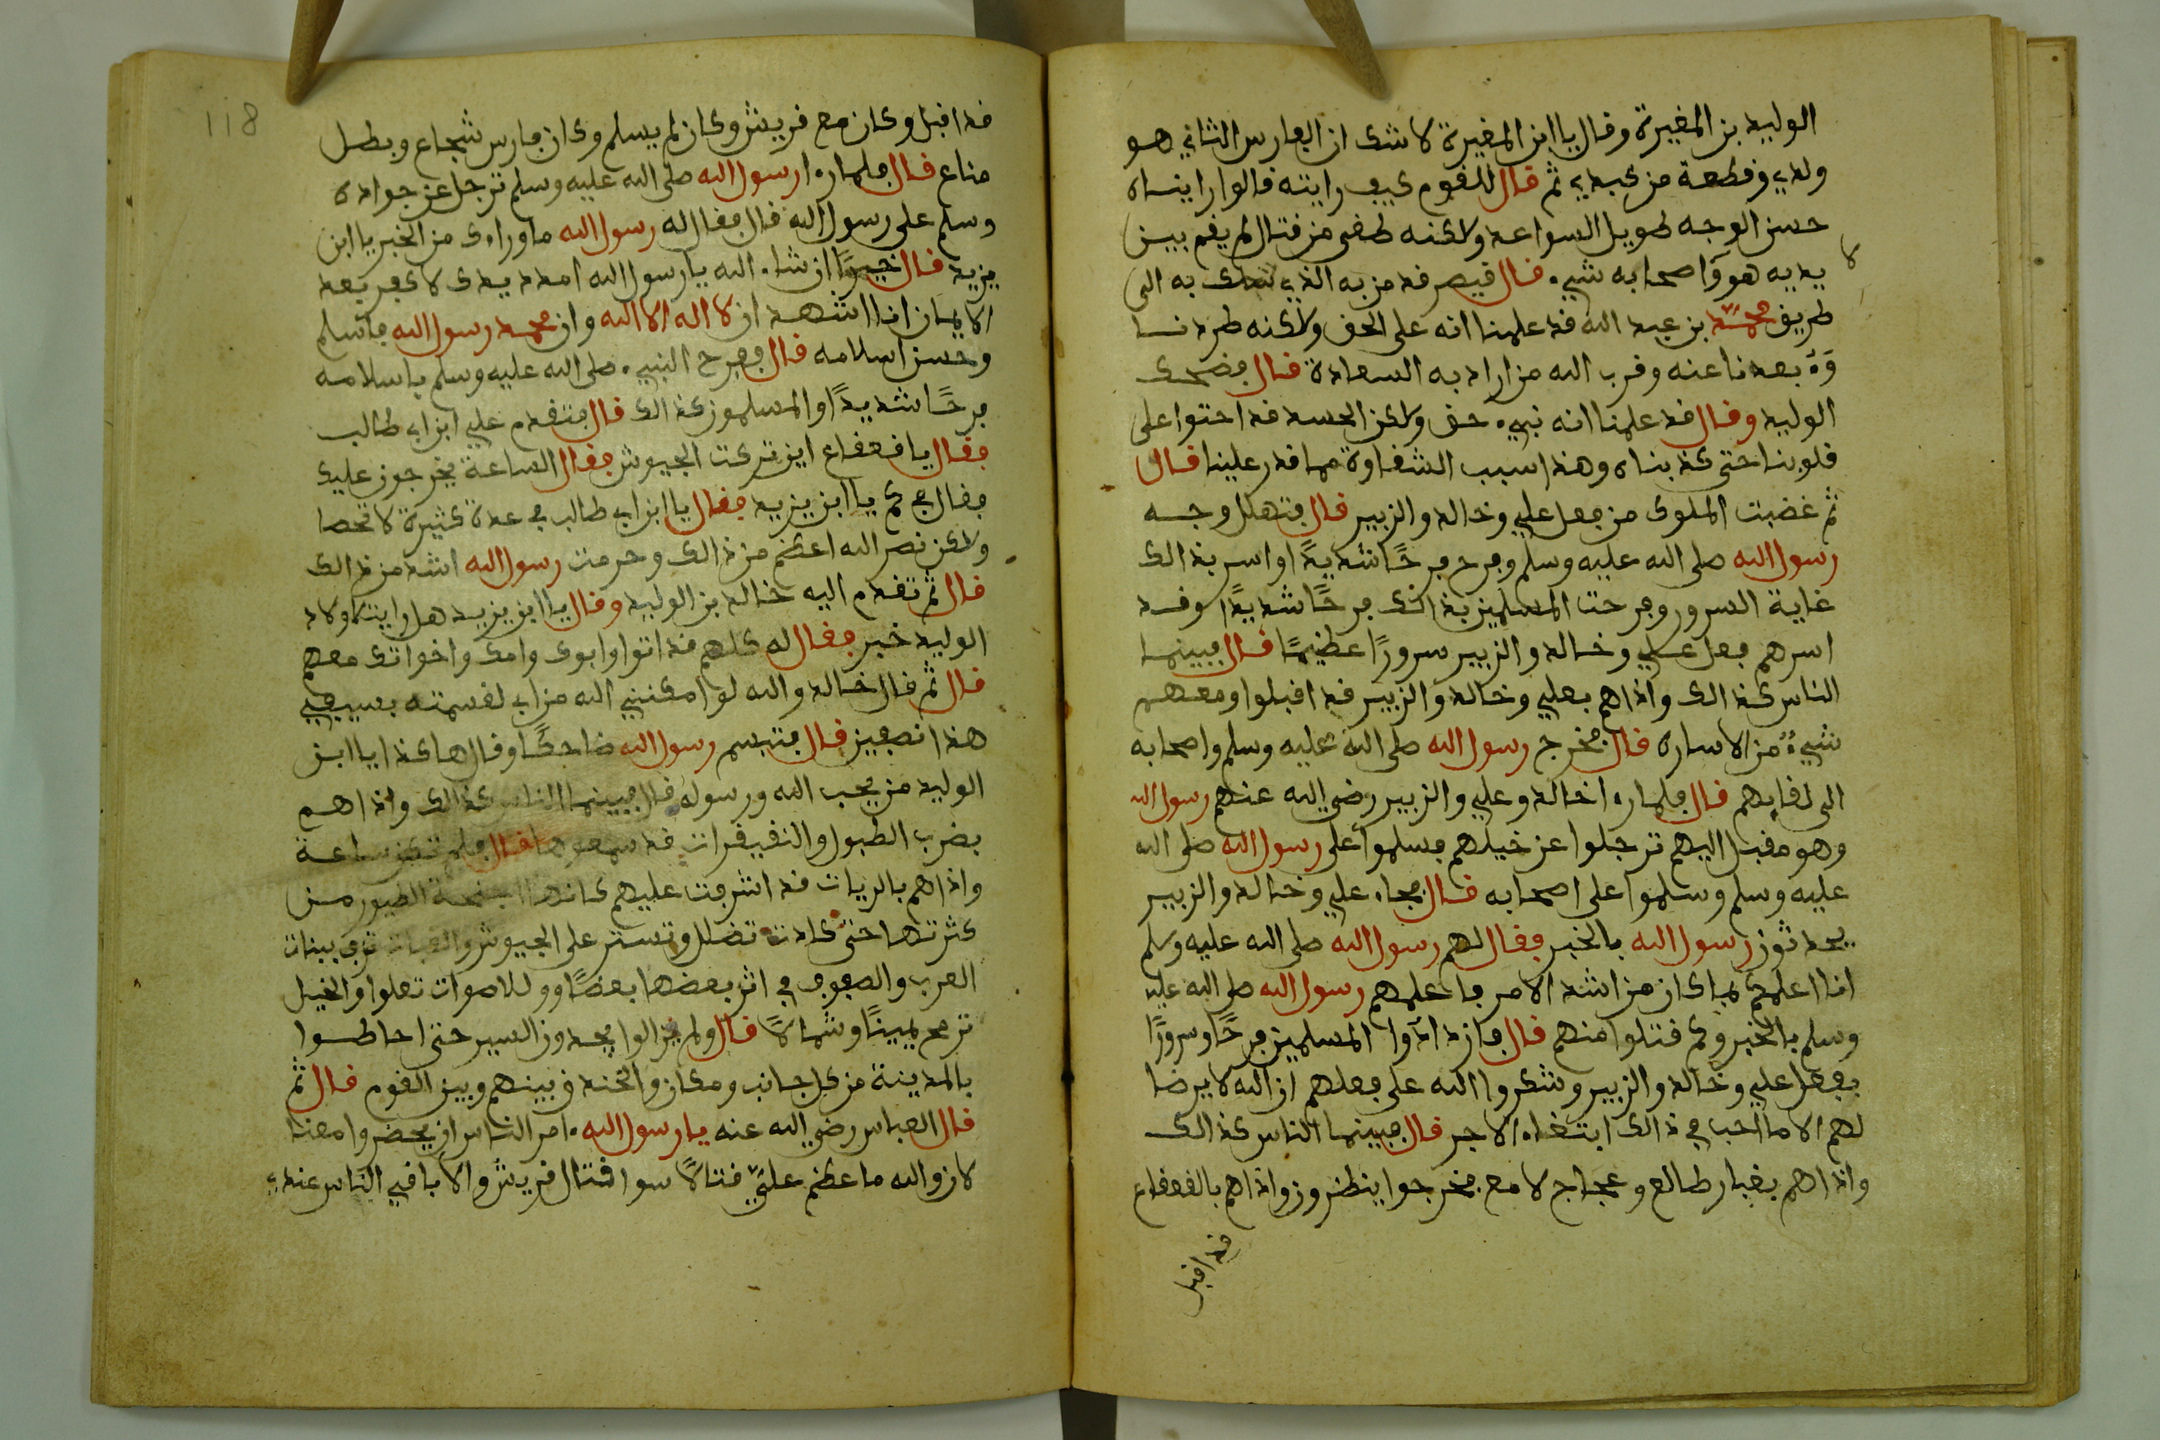 الوليد بن المغيرة وقال يا ابن المغيرة لا شك ان الفارس الثاني هو
ولدي وقطعة من كبدي ثم قال للقوم كيف رايته قالوا رايناه
حسن الوجه طويل السواعد ولاكنه طغى من قتال لم يقم بين
يديه هو واصحابه شيء قال قيصر قد من به الذي سلك به الى
لا
طريق محمد بن عبد الله قد علمنا انه على الحق ولاكنه طردنا
وبعدنا عنه وقرب الله من اراد به السعادة قال فضحك
الوليد وقال قد علمنا انه نبيء حق ولاكن الحسد قد احتوا على
قلوبنا حتى كذبناه وهذا سبب الشقاوة مما قدر علينا قال
ثم غضبت الملوك من فعل علي وخالد والزبير قال فتهلل وجه
رسول الله صلى الله عليه وسلم وفرح فرحًا شديدًا واسر بذالك
غاية السرور وفرحت المسلمين بذالك فرحًا شديدًا وقد
اسرهم فعل علي وخالد والزبير سرورًا عظيمًا قال فبينما
الناس كذالك واذاهم بعلي وخالد والزبير قد اقبلوا ومعهم
شيء من الاساره قال فخرج رسول الله صلى الله عليه وسلم واصحابه
الى لقايهم قال فلما راه اخالد وعلي والزبير رضي الله عنهم رسول الله
وهو مقبل اليهم ترجلوا عن خيلهم فسلموا على رسول الله صلى الله
عليه وسلم وسلموا على اصحابه قال فجاء علي وخالد والزبير
يحدثون رسول الله بالخبر فقال لهم رسول الله صلى الله عليه وسلم
انا اعلمكم بما كان من اشد الامر فاعلمهم رسول الله صلى الله عليه
وسلم بالخبر وكم قتلوا منهم قال فازدادوا المسلمين فرحًا وسرورًا
بفعل علي وخالد والزبير وشكروا الله على فعلهم ان الله لا يرضا
لهم الا ما احب في ذالك ابتغاء الاجر قال فبينما الناس كذالك
واذاهم بغبار طالع وعجاج لامع فخرجوا ينظرون واذاهم بالقعقاع
قد اقبل
118
قد اقبل وكان مع قريش وكان لم يسلم وكان فارس شجاع وبطل
مناع قال فلما راه ارسول الله صلى الله عليه وسلم ترجل عن جواده
وسلم على رسول الله قال فقال له رسول الله ما وراءك من الخبر يا ابن
يزيد قال خيرًا ان شاء الله يا رسول الله امدد يدك لا كفر بعد
الايمان انا اشهد ان لا اله الا الله وان محمد رسول الله فاسلم
وحسن اسلامه قال ففرح النبيء صلى الله عليه وسلم باسلامه
فرحًا شديدًا والمسلمون كذالك قال فتقدم علي ابن ابي طالب
فقال يا قعقاع اين تركت الجيوش فقال الساعة يخرجون عليك
فقال في كم يا ابن يزيد فقال يا ابن ابي طالب في عدة كثيرة لا تحصا
ولاكن نصر الله اعظم من ذالك وحرمت رسول الله اشد من ذالك
قال ثم تقدم اليه خالد بن الوليد وقال يا ابن يزيد هل رايت لاولاد
الوليد خبر فقال له كلهم قد اتوا وابوك وامك واخواتك معهم
قال ثم قال خالد والله لو امكنني الله من ابي لقسمته بسيفي
هذا نصفين قال فتبسم رسول الله ضاحكًا وقال هاكذا يا ابن
الوليد من يحب الله ورسوله قال فبينما الناس كذالك واذاهم
بضرب الطبول والنفيقرات قد سمعوها قال فلم تكن ساعة
واذاهم بالريات قد اشرفت عليهم كانها اجنحة الطيور من
كثرتها حتى كادت تضلل وتستر على الجيوش والقباب ترى ببنات
العرب والصفوف في اثر بعضها بعضًا وللاصوات تعلوا والخيل
ترمح يمينًا وشمالًا قال ولم يزالوا يجدون السير حتى احاطوا
بالمدينة من كل جانب ومكان والخندق بينهم وبين القوم قال ثم
قال العباس رضي الله عنه يا رسول الله امر الناس ان يحضروا معنا
لان والله ما عظم علي قتالًا سوا قتال قريش والا باقي الناس عندي